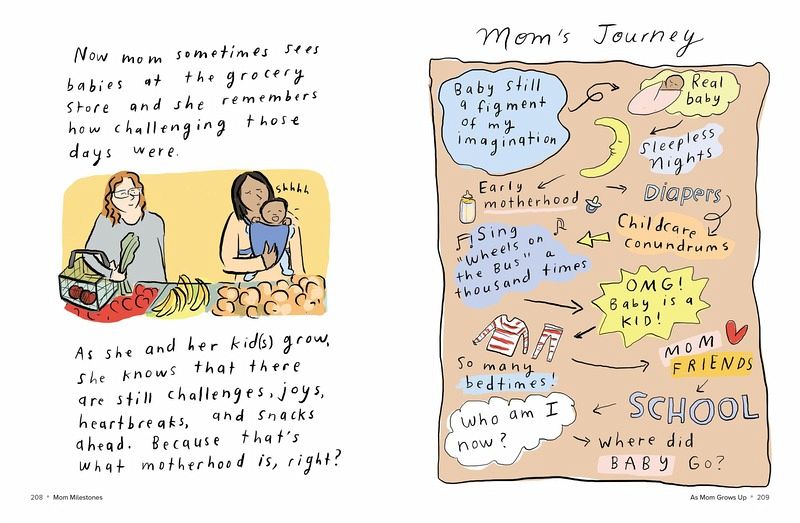 Now mom sometimes sees
babies at the grocery
store and she remembers
how challenging those
days were.
shhhh
As she and her kid(s) grow,
she knows that there
are still challenges, joys,
heartbreaks, and snacks
ahead. Because that's
what motherhood is, right?
208 * Mom Milestones
Mom's Journey
Baby still
a figment
of my
imagination
Real
baby
Sleepless
Nights
Early
motherhood
Diapers
Childcare
conundrums
Sing
"Wheels on
the Bus" a
thousand times
OMG!
Baby is a
KID!
So many
bedtimes!
MOM
FRIENDS
SCHOOL
Who am I
now?
where did
BABY Go?
As Mom Grows Up * 209